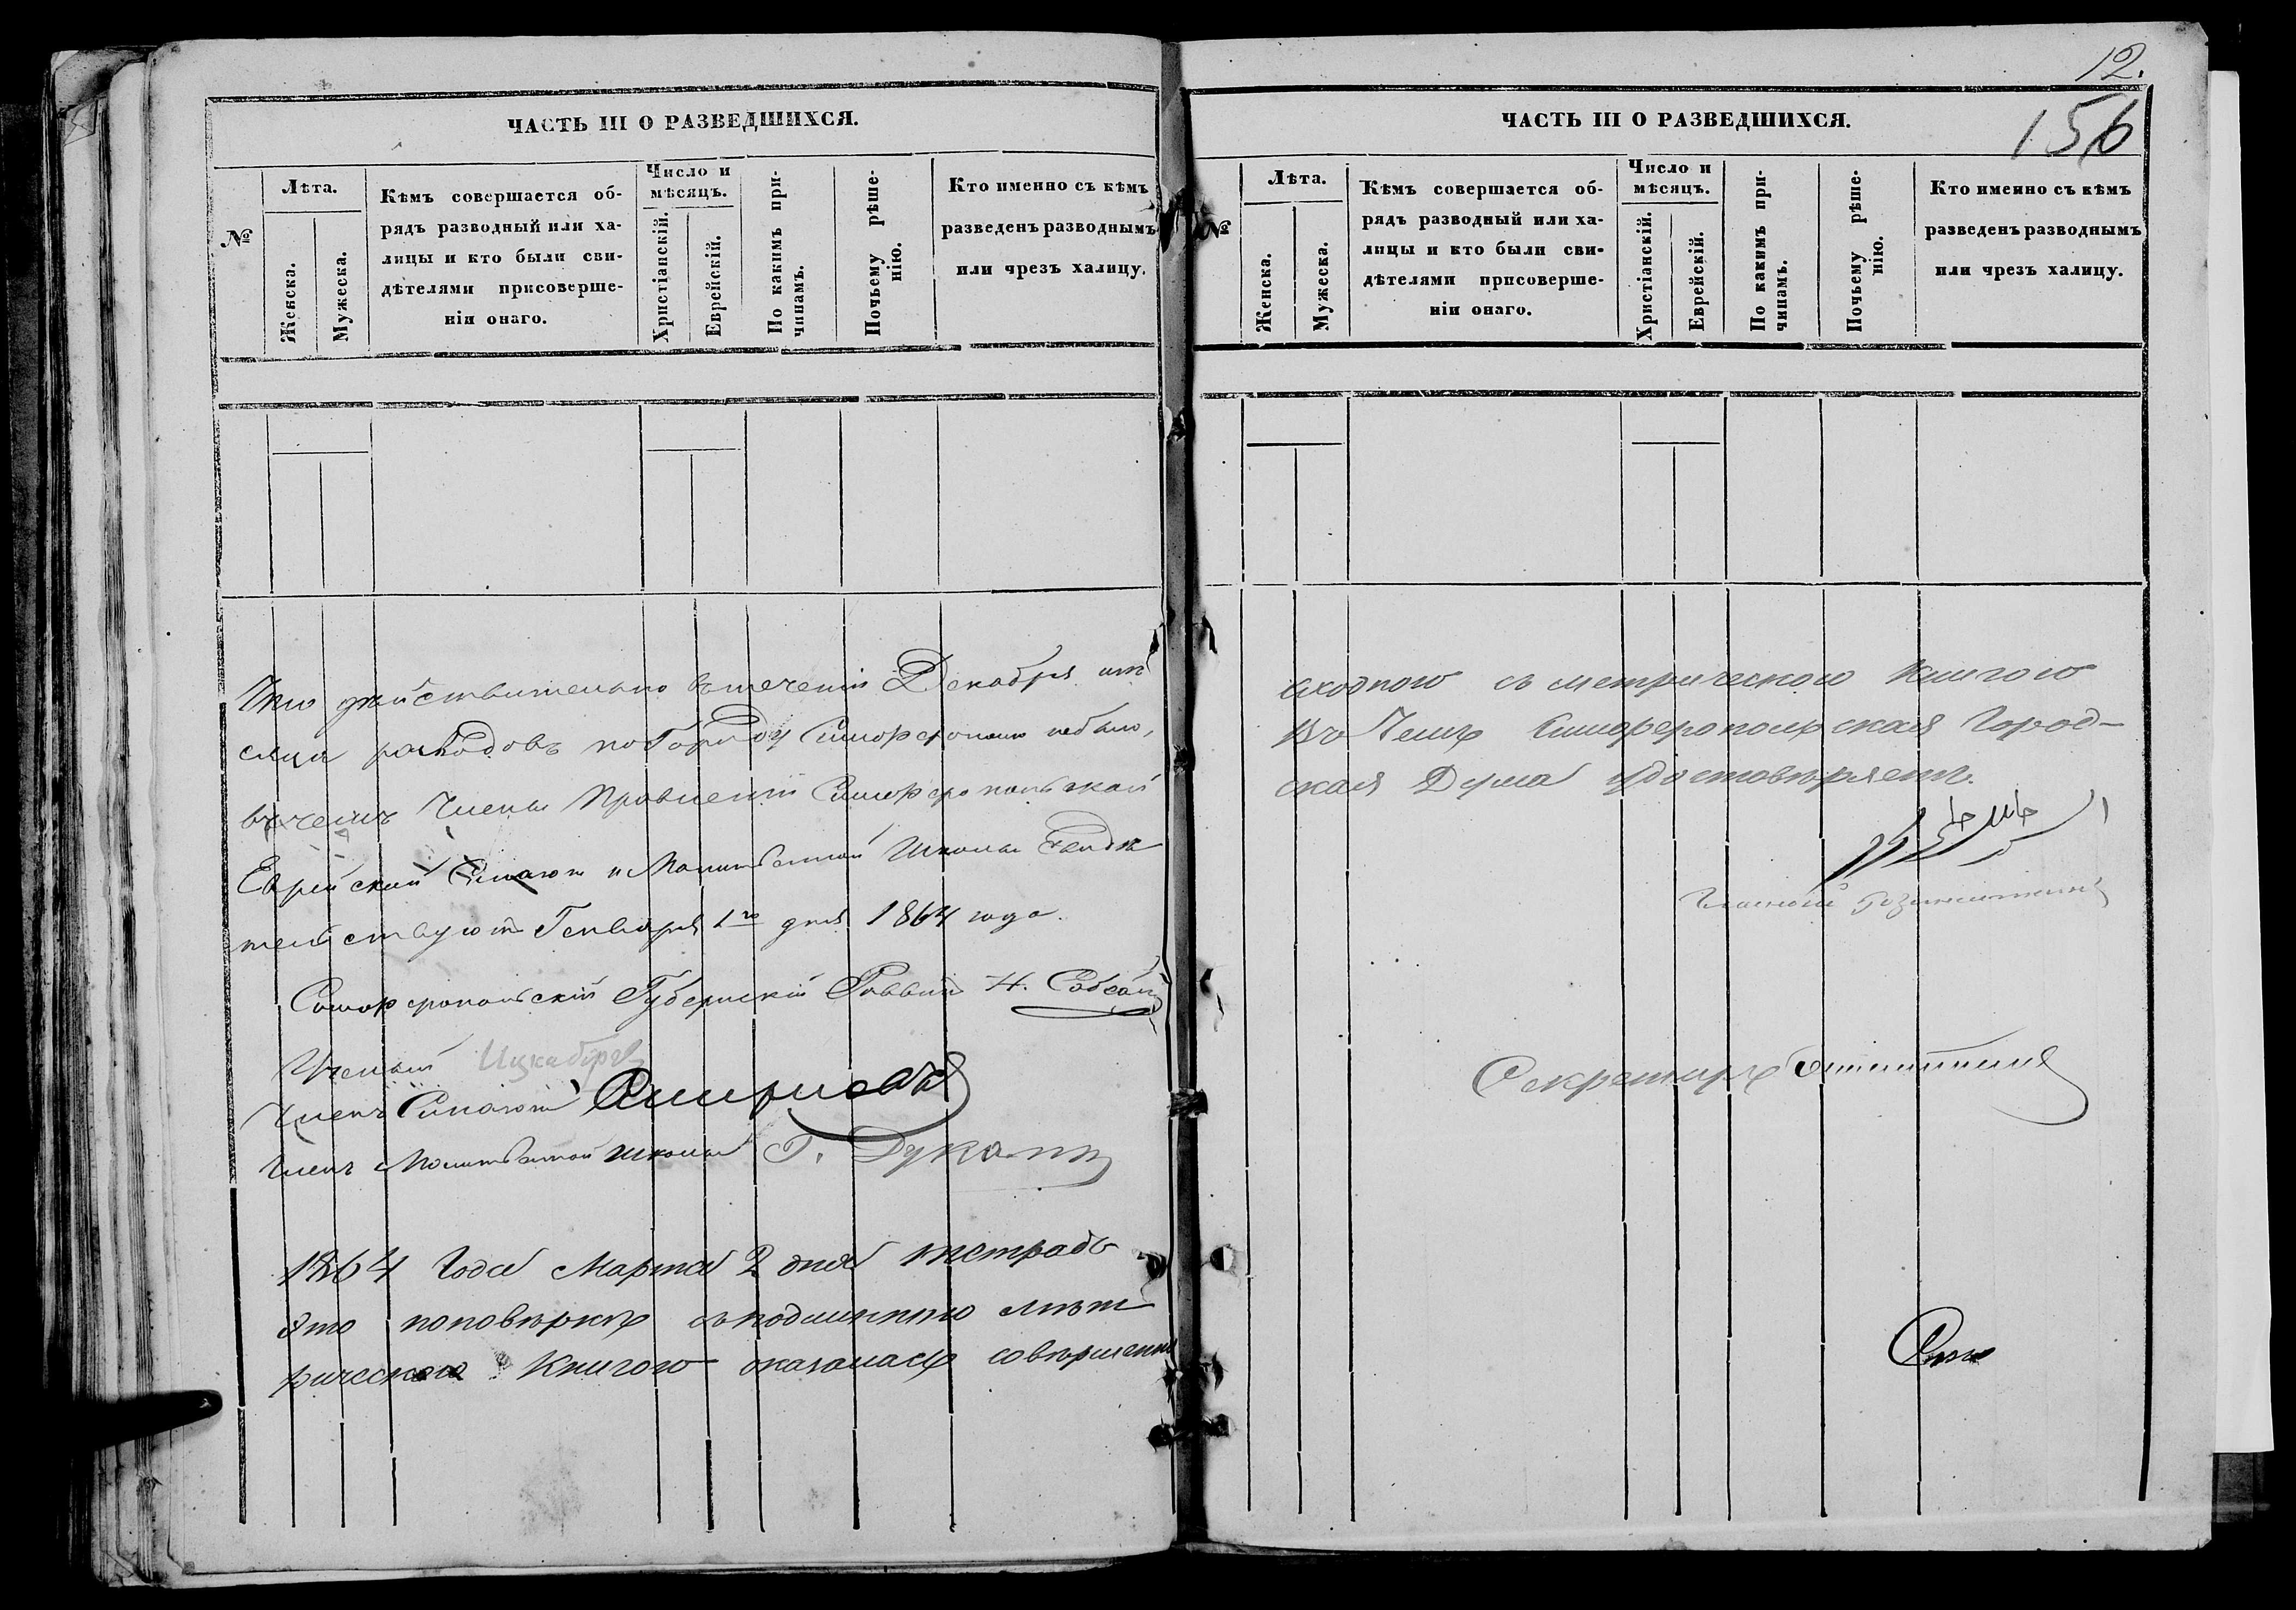 ЧАСТЬ III О РАЗВЕДШИХСЯ.
№
Лѣта.
Женска.
Мужеска.
Кѣмъ совершается об-
рядъ разводный или ха-
лицы и кто были сви-
дѣтелями присоверше-
ніи онаго.
Число и
мѣсяцъ.
Христіанскій.
Еврейскій.
По какимъ при-
чинамъ.
Почьему рѣше-
нію.
Кто именно съ кѣмъ
разведенъ разводнымъ
или чрезъ халицу.
Что действительно втечении Декабря мѣ
сяца розводовъ по Городу Симферополю небыло,
въ чемъ Члены Правленій Симферопольской
Еврейской Синагоги и Молитвенной Школы свидѣ
тельствуютъ Генваря 1го дня 1864 года.
Симферопольскій Губернскій Раввинъ Н.
Ученый
Членъ Синагоги
Членъ Молитвенной школы Г.
1864 Года Марта 2 дня тетрадь
это поповѣркѣ съподлинною мѣт
рическою Книгою оказалась совершенно
12.
156
ЧАСТЬ III О РАЗВЕДШИХСЯ.
№
Лѣта.
Женска.
Мужеска.
Кѣмъ совершается об-
рядъ разводный или ха-
лицы и кто были сви-
дѣтелями присоверше-
ніи онаго.
Число и
мѣсяцъ.
Христіанскій.
Еврейскій.
По какимъ при-
чинамъ.
Почьему рѣше-
нію.
Кто именно съ кѣмъ
разведенъ разводнымъ
или чрезъ халицу.
сходною съ метрическою книгою
Въ Чемъ Симферопольская Город-
ская Дума удостовѣряетъ.
Гласный
Секретарь